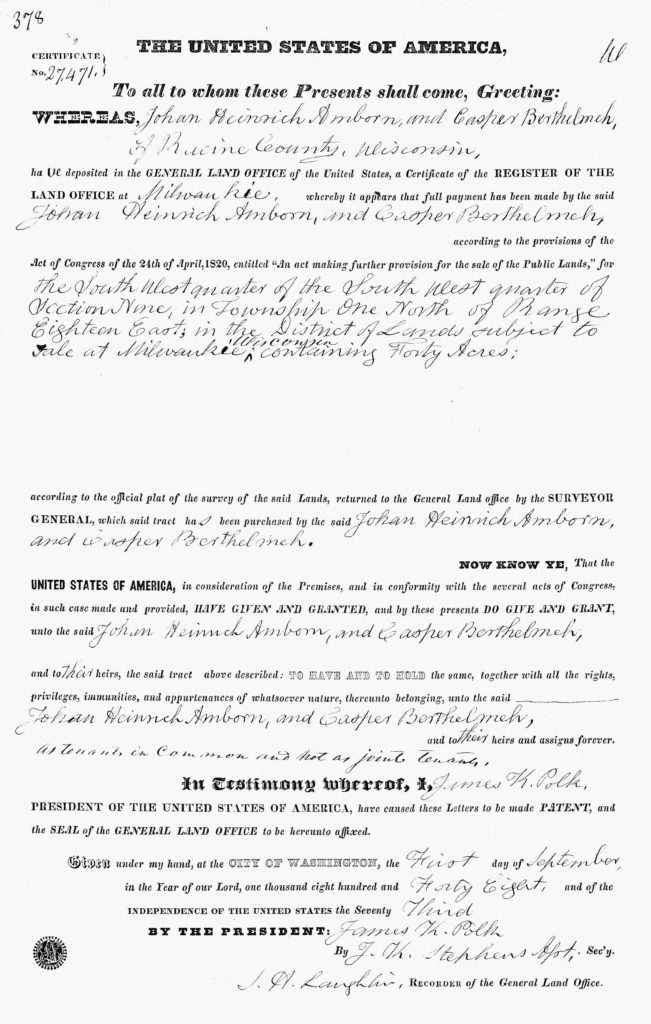 378
THE UNITED STATES OF AMERICA,
CERTIFICATE
No. 27,471.
To all to whom these Presents shall come, Greeting:
WHEREAS, Johan Heinrich Amborn, and Casper Berthelmeh,
of Racine County, Wisconsin,
ha ve deposited in the GENERAL LAND OFFICE of the United States, a Certificate of the REGISTER OF THE
LAND OFFICE at Milwaukie, whereby it appears that full payment has been made by the said
Johan Heinrich Amborn, and Casper Berthelmeh,
according to the provisions of the
Act of Congress of the 24th of April, 1820, entitled “An act making further provision for the sale of the Public Lands,” for
the South West quarter of the South West quarter of
Section Nine, in Township One North of Range
Eighteen East; in the District of Lands subject to
sale at Milwaukie, Wisconsin containing Forty Acres;
according to the official plat of the survey of the said Lands, returned to the General Land office by the SURVEYOR
GENERAL, which said tract has been purchased by the said Johan Heinrich Amborn,
and Casper Berthelmeh.
NOW KNOW YE, That the
UNITED STATES OF AMERICA, in consideration of the Premises, and in conformity with the several acts of Congress,
in such case made and provided, HAVE GIVEN AND GRANTED, and by these presents DO GIVE AND GRANT,
unto the said Johan Heinrich Amborn, and Casper Berthelmeh,
and to their heirs, the said tract above described: TO HAVE AND TO HOLD the same, together with all the rights,
privileges, immunities, and appurtenances of whatsoever nature, thereunto belonging, unto the said
Johan Heinrich Amborn, and Casper Berthelmeh,
and to their heirs and assigns forever.
as tenants in Common and not as joint tenants.
In Testimony whereof, I, James K. Polk,
PRESIDENT OF THE UNITED STATES OF AMERICA, have caused these Letters to be made PATENT, and
the SEAL of the GENERAL LAND OFFICE to be hereunto affixed.
Given under my hand, at the CITY OF WASHINGTON, the First day of September,
in the Year of our Lord, one thousand eight hundred and Forty Eight, and of the
INDEPENDENCE OF THE UNITED STATES the Seventy Third
BY THE PRESIDENT: James K. Polk
By J. K. Stephens Asst, Sec'y.
S. H. Laughlin, RECORDER of the General Land Office.